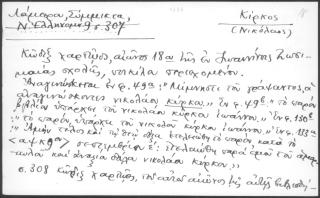 Λάμπρου, Σύμμικτα,
Ν. Ελληνομν. 9 σ. 307
Κύρκος
(Νικόλαος)
Κώδιξ χαρτῷος, αἰῶνος 18ου τῆς ἐν Ἰωαννίνοις Ζωσι-
μαίας σχολῆς, ποικίλου περιεχομένου.
Ἀναγινώσκεται ἐν φ. 49α "Μέμνησθε τοῦ γράψαντος οἱ
ἀναγινώσκοντες νικολάου κύρκου". Ἐν φ. 49β "τὸ παρὸν
βιβλίον ὑπάρχει τοῦ νικολάου κύρκου ἰωαννίτου". Ἐν φ. 130β
"τὸ παρὸν ὑπάρχει τοῦ νικολάου κύρκου ἰωαννίτου". Ἐν φ.
"Ἀμὴν τέλος καὶ τῷ θεῷ δόξα ἐτελειώθη τὸ παρὸν κατὰ τὸ
σεπτεμβρίου ἐτελειώθη παρ' ἐμοῦ τοῦ ἁμαρ-
τωλοῦ καὶ ἀναξίου νικολάου κύρκου".
σ. 308 κώδιξ χαρτῷος, τοῦ αὐτοῦ αἰῶνος τῆς αὐτῆς